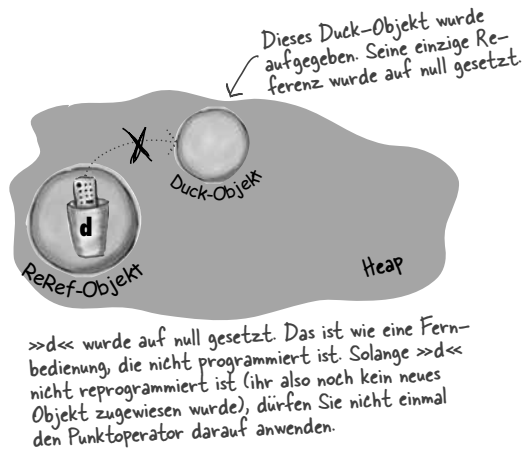 Dieses Duck-Objekt wurde
aufgegeben. Seine einzige Re-
ferenz wurde auf null gesetzt.
Duck-Objekt
d
ReRef-Objekt
Heap
»d« wurde auf null gesetzt. Das ist wie eine Fern-
bedienung, die nicht programmiert ist. Solange »d«
nicht reprogrammiert ist (ihr also noch kein neues
Objekt zugewiesen wurde), dürfen Sie nicht einmal
den Punktoperator darauf anwenden.